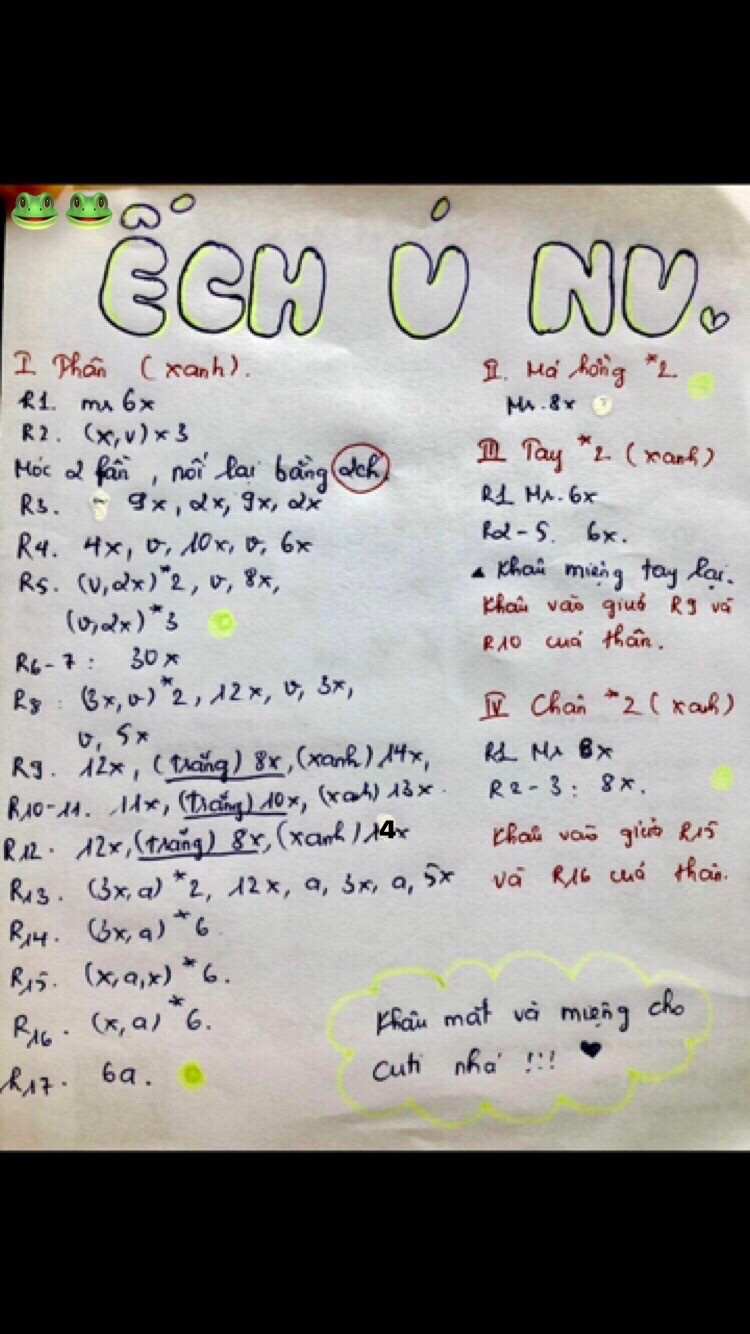 ẾCH Ú NU.
I Thân (xanh).
R1. mr 6x
R2. (x,v) x 3
Móc 2 phần, nối lại bằng 2ch
R3. 9x, 2x, 9x, 2x
R4. 4x, v, 10x, v, 6x
R5. (v,2x)*2, v, 8x,
(v,2x)*3
R6-7: 30x
R8: (3x,v)*2, 12x, v, 3x,
v, 5x
R9. 12x, (trắng) 8x, (xanh) 14x,
R10-11. 11x, (trắng) 10x, (xah) 13x.
R12. 12x, (trắng) 8x, (xanh) 14x
R13. (3x,a)*2, 12x, a, 3x, a, 5x
R14. (3x,a)*6
R15. (x,a,x)*6.
R16. (x,a)*6.
R17. 6a.
II. Má hồng *2
Mr. 8x
III Tay *2 (xanh)
R1 Mr. 6x
R2-5. 6x.
▲ Khâu miệng tay lại.
Khâu vào giuố R9 và
R10 cuả thân.
IV Chân *2 (xah)
R1 Mr 8x
R2-3: 8x.
Khâu vào giữa R15
và R16 cuả thân.
Khâu mắt và miệng cho
cuti nhá!!! ♥